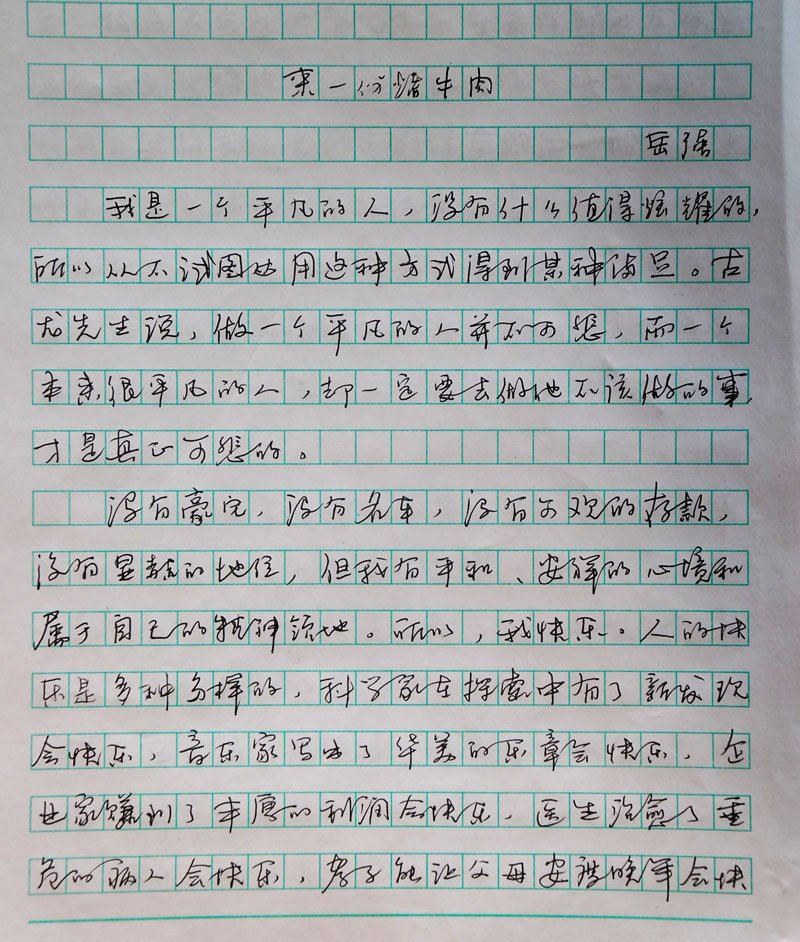 来一份烤牛肉
岳强
我是一个平凡的人，没有什么值得炫耀的，
所以从不试图使用这种方式得到某种满足。古
龙先生说，做一个平凡的人并不可悲，而一个
本来很平凡的人，却一定要去做他不该做的事，
才是真正可悲的。
没有豪宅，没有名车，没有可观的存款，
没有显赫的地位，但我有平和、安详的心境和
属于自己的精神领地。所以，我快乐。人的快
乐是多种多样的，科学家在探索中有了新发现
会快乐，音乐家写出了华美的乐章会快乐，企
业家赚到了丰厚的利润会快乐，医生治愈了重
危的病人会快乐，孝子能让父母安度晚年会快